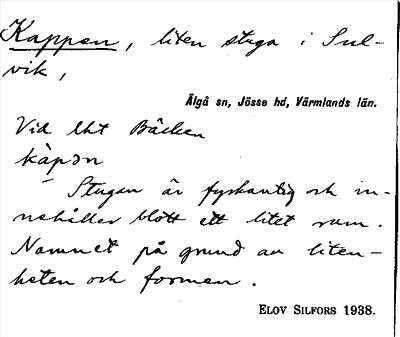 Kappen, liten stuga i Sul-
vik,
Älgå sn, Jösse hd, Värmlands län.
Vid Bäcken
kapən
Stugan är fyrkantig och in-
nehåller blott ett litet rum.
Namnet på grund av liten-
heten och formen.
ELOV SILFORS 1938.